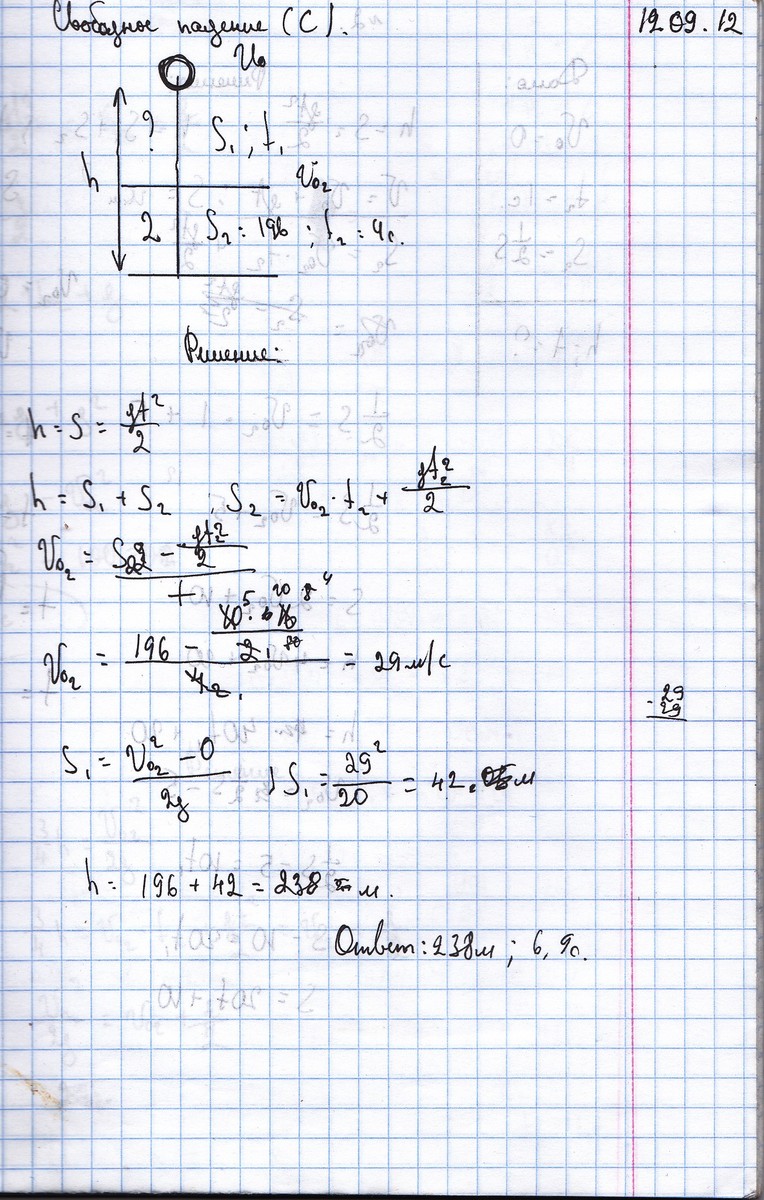 Свободное падение (С). 19.09.12
V₀
? S₁ ; t₁
h V₀₂
2 S₂ = 196 ; t₂ = 4с.
Решение:
h = S = gt²/2
h = S₁ + S₂ ; S₂ = V₀₂ · t₂ + gt₂²/2
V₀₂ = (S₂ - gt₂²/2) / t
V₀₂ = (196 - 10 · 16/2) / 4 = 29 м/с
29
29
S₁ = (V₀₂² - 0)/2g ; S₁ = 29²/20 = 42 м
h = 196 + 42 = 238 м.
Ответ: 238м ; 6,9с.